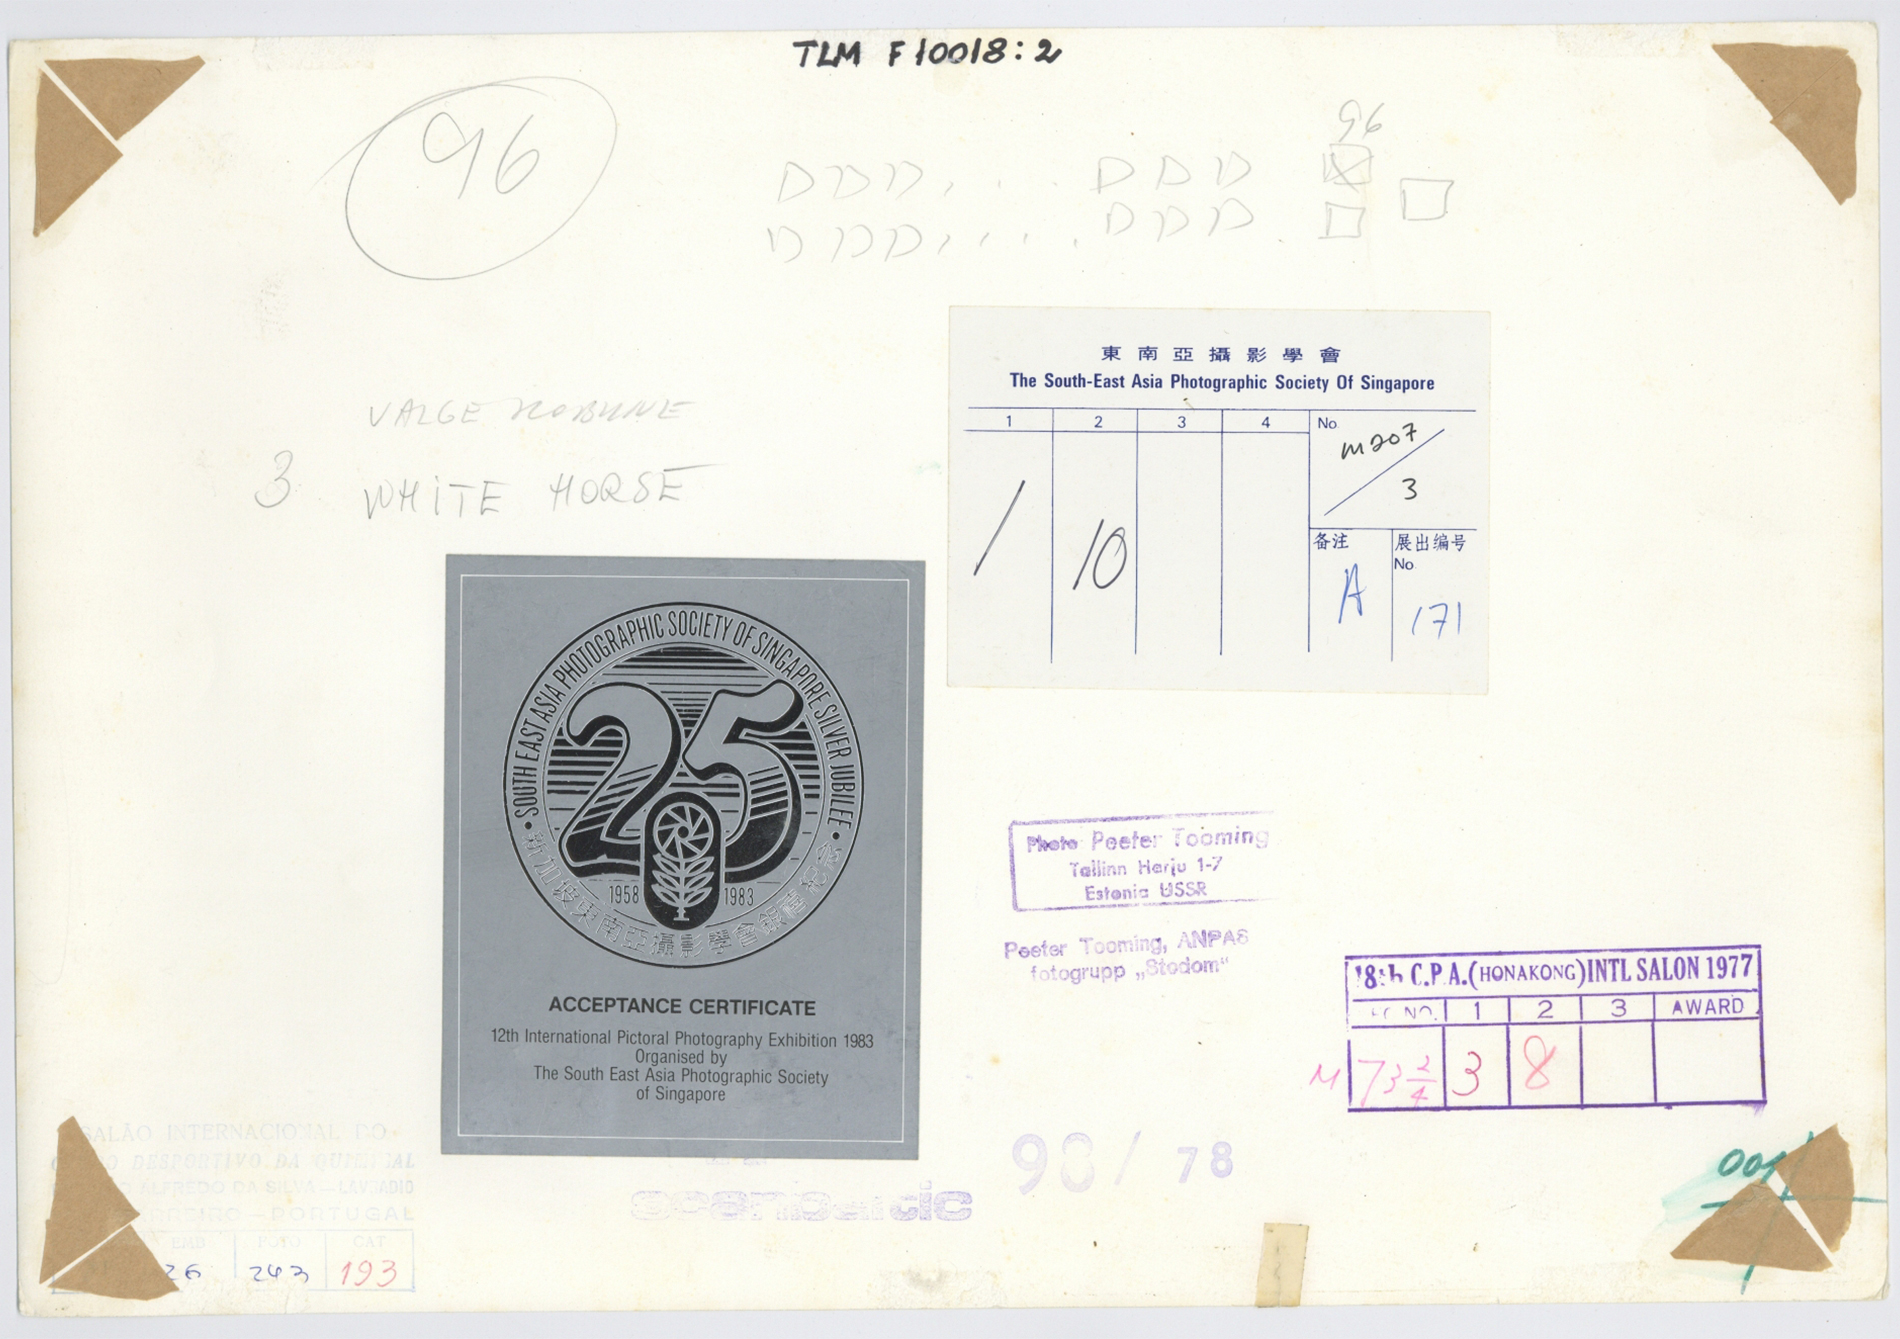 TLM F10018:2
96
96
D D D , . . . D D D
D D D D , , . . . D D D .
VALGE HOBUNE
3 WHITE HORSE
東南亞攝影學會
The South-East Asia Photographic Society Of Singapore
1 2 3 4 No.
m207
3
/ 10
备注 展出编号
No.
A 171
• SOUTH EAST ASIA PHOTOGRAPHIC SOCIETY OF SINGAPORE SILVER JUBILEE •
25
1958 1983
新加坡東南亞攝影學會銀禧紀念
ACCEPTANCE CERTIFICATE
12th International Pictoral Photography Exhibition 1983
Organised by
The South East Asia Photographic Society
of Singapore
Photo Peeter Tooming
Tallinn Harju 1-7
Estonia USSR
Peeter Tooming, ANPAS
fotogrupp „Stodom"
18th C.P.A.(HONAKONG)INTL SALON 1977
NO. 1 2 3 AWARD
M 73 2/4 3 8
90/ 78
scanbaltic
SALÃO INTERNACIONAL DO
DESPORTIVO DA QUIMIGAL
ALFREDO DA SILVA — LAVRADIO
BARREIRO — PORTUGAL
EMB FOTO CAT
26 243 193
001